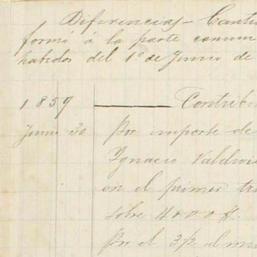 Diferencias - Canti
forme á la parte comun
habidos del 1º de Junio de
1859 Contrib
Junio 30 Por importe de
Ignacio Valdivi
en el primer tri
sobre 4000 $.
Por el 3 p% al me